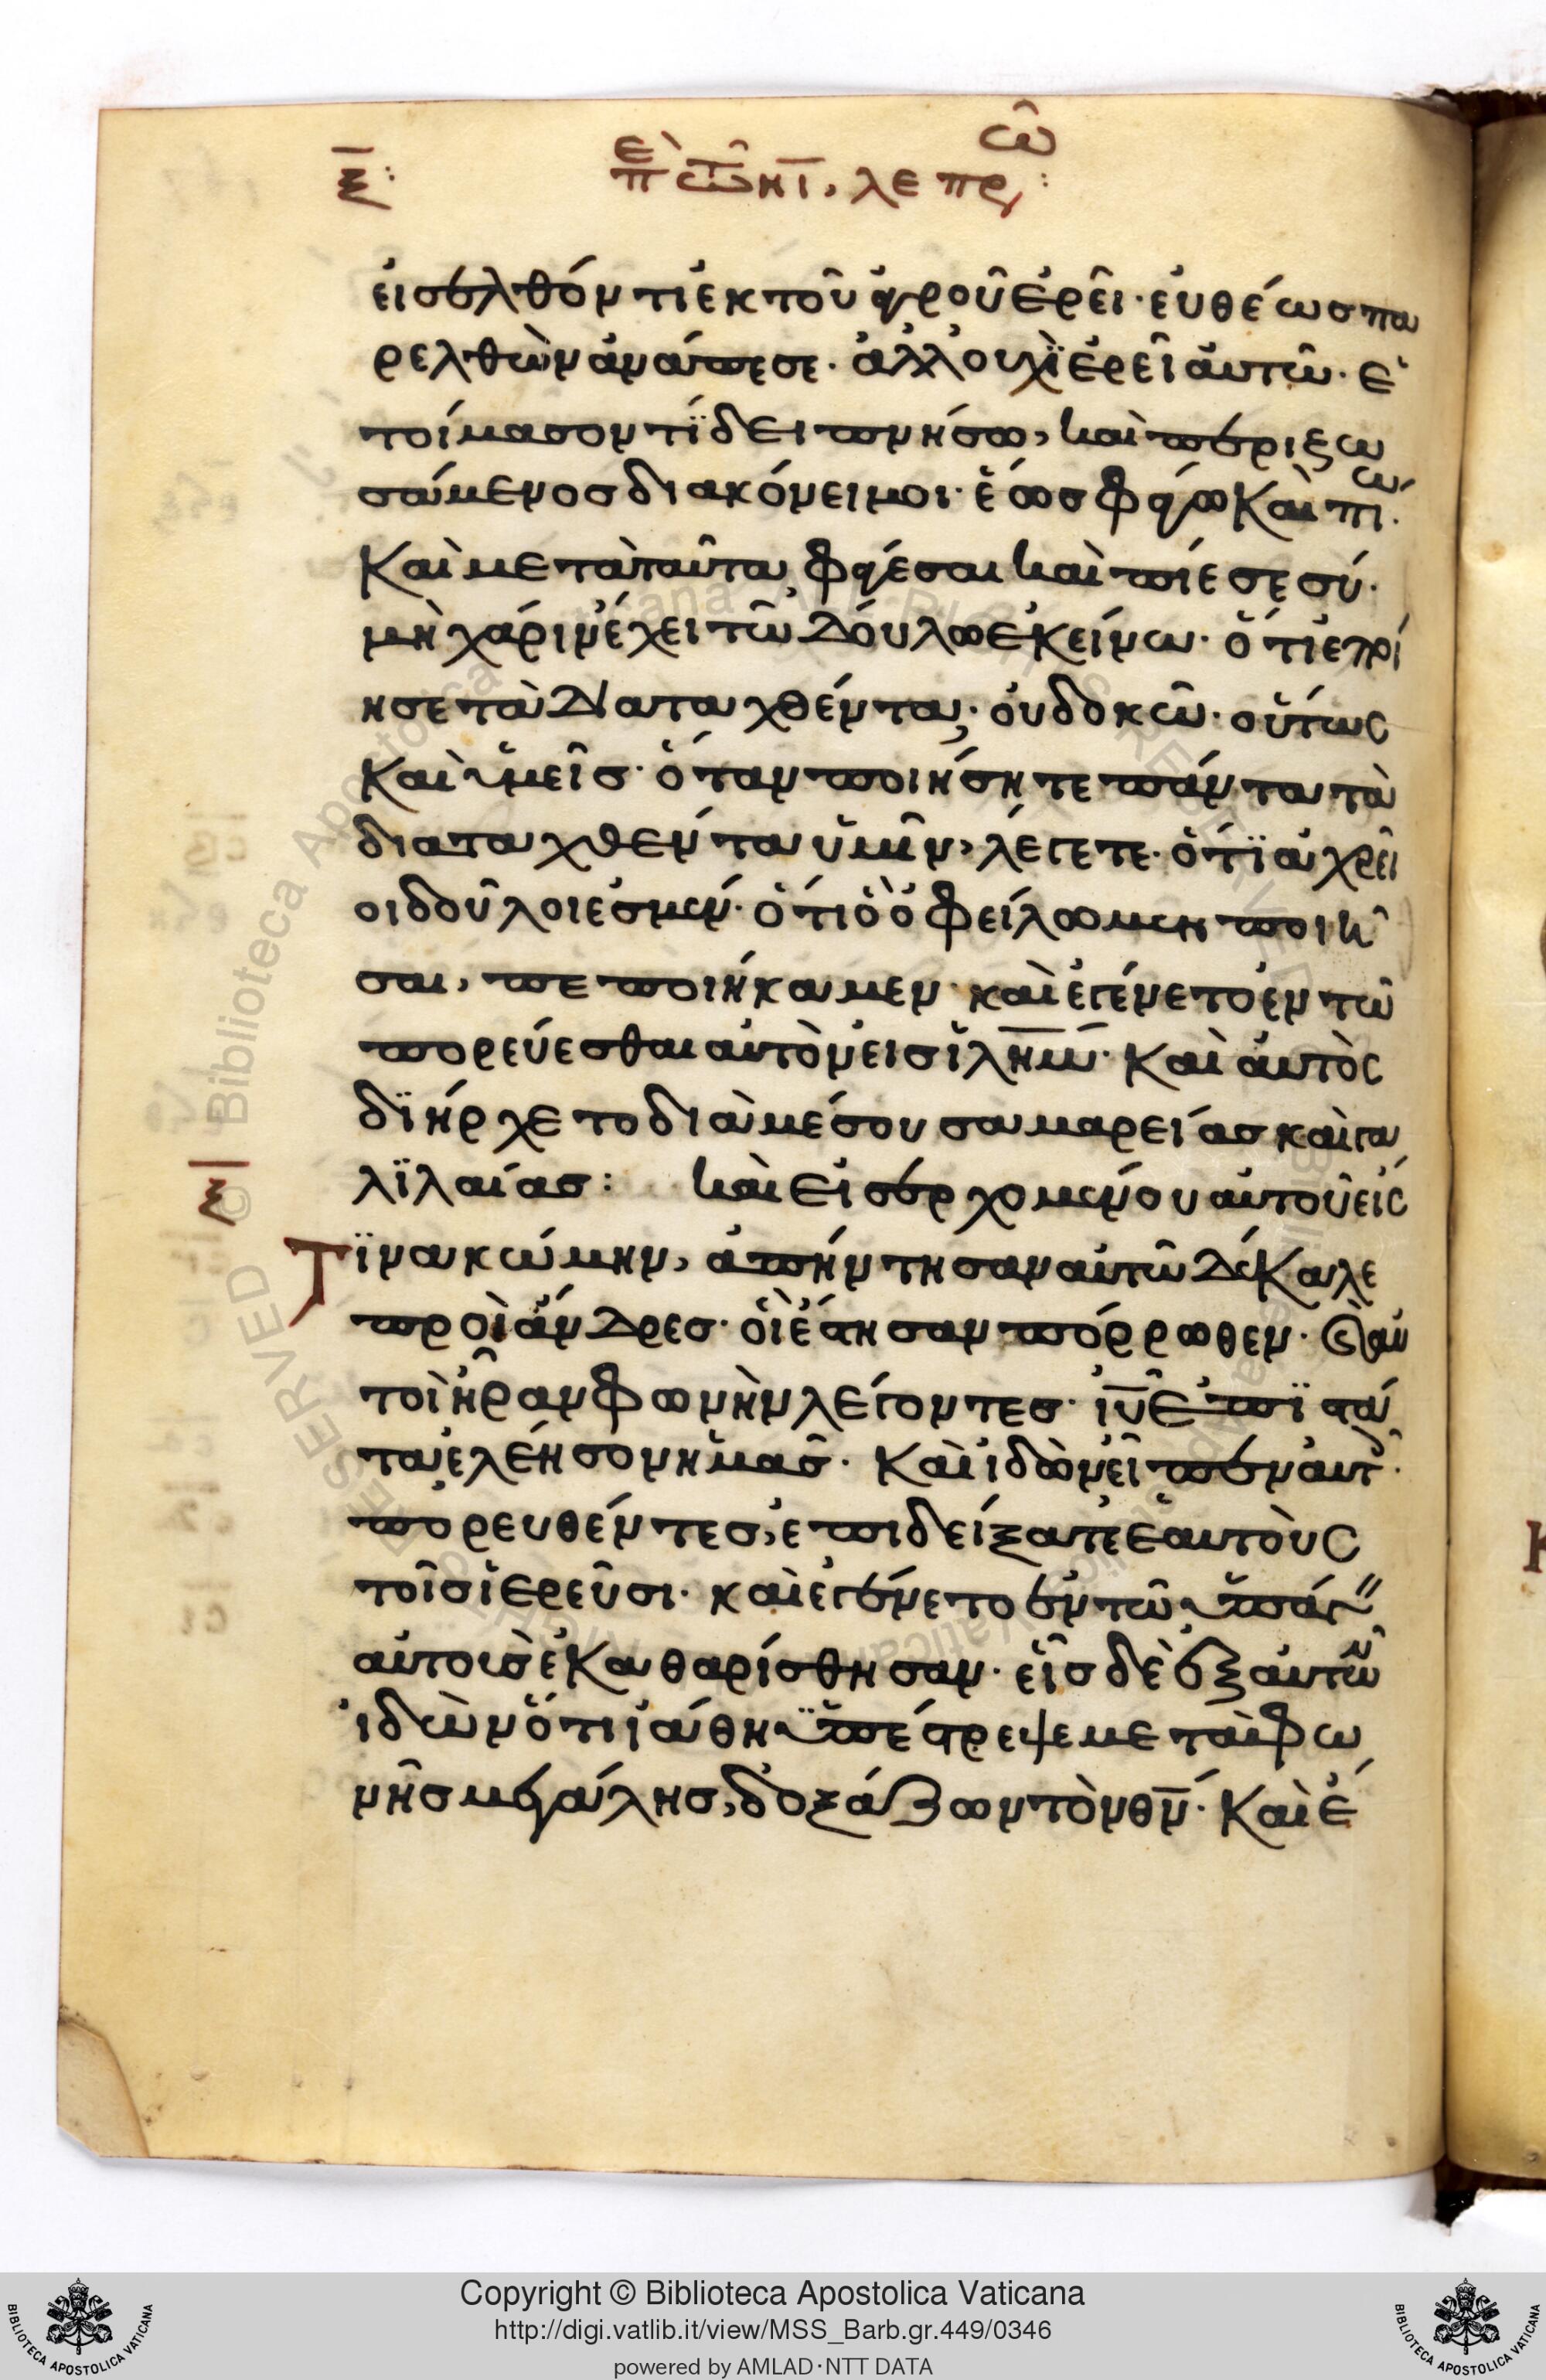 ξ̅: πὲ τῶν ι̅, λεπρῶ:
εἰσελθόντι ἐκ τοῦ ἀγροῦ ἐρεῖ· εὐθέωσ πα
ρελθὼν ἀνάπεσε· ἀλλ᾽ οὐχὶ ἐρεῖ αὐτῶ· ἑ
τοίμασον τί δειπνήσω, καὶ περιζω
σάμενοσ διακόνει μοι· ἕωσ φάγω καὶ πίω·
καὶ μετὰ ταῦτα φάγεσαι καὶ πίεσε σύ·
μὴ χάριν ἔχει τῶ δούλω ἐκείνω· ὅτι ἐποί
ησε τὰ διαταχθέντα; οὐ δοκῶ· οὕτως
καὶ ὑμεῖσ· ὅταν ποιήσητε πάντα τὰ
διαταχθέντα ὑμῖν, λέγετε· ὅτι ἀχρεῖ
οι δοῦλοι ἐσμέν· ὅτι ὃ ὀφείλωμεν ποιῆ
σαι, πεποιήκαμεν· καὶ ἐγένετο ἐν τῶ
πορεύεσθαι αὐτὸν εἰσ ἰλ̅η̅μ̅· καὶ αὐτὸς
διήρχετο διὰ μέσου σαμαρείασ καὶ γα
λιλαίασ: καὶ εἰσερχομένου αὐτοῦ εἴς
ξ̅
Τινα κώμην, ἀπήντησαν αὐτῶ δέκα λε
προὶ ἄνδρεσ· οἳ ἔστησαν πόρρωθεν· καὶ αὐ
τοὶ ἦραν φωνὴν λέγοντεσ· ἰ̅υ̅ ἐπιστά
τα ἐλέησον ἡμᾶσ· καὶ ἰδὼν εἶπεν αὐτ·
πορευθέντεσ, ἐπιδείξατε ἑαυτοὺς
τοῖσ ἱερεῦσι· καὶ ἐγένετο ἐν τῶ ὑπάγ
αὐτοὺσ ἐκαθαρίσθησαν· εἷσ δὲ ἐξ αὐτῶν
ἰδὼν ὅτι ἰάθη ὑπέστρεψε μετὰ φω
νῆσ μεγάλησ, δοξάζων τὸν θ̅ν̅· καὶ ἔ
Copyright © Biblioteca Apostolica Vaticana
http://digi.vatlib.it/view/MSS_Barb.gr.449/0346
powered by AMLAD·NTT DATA